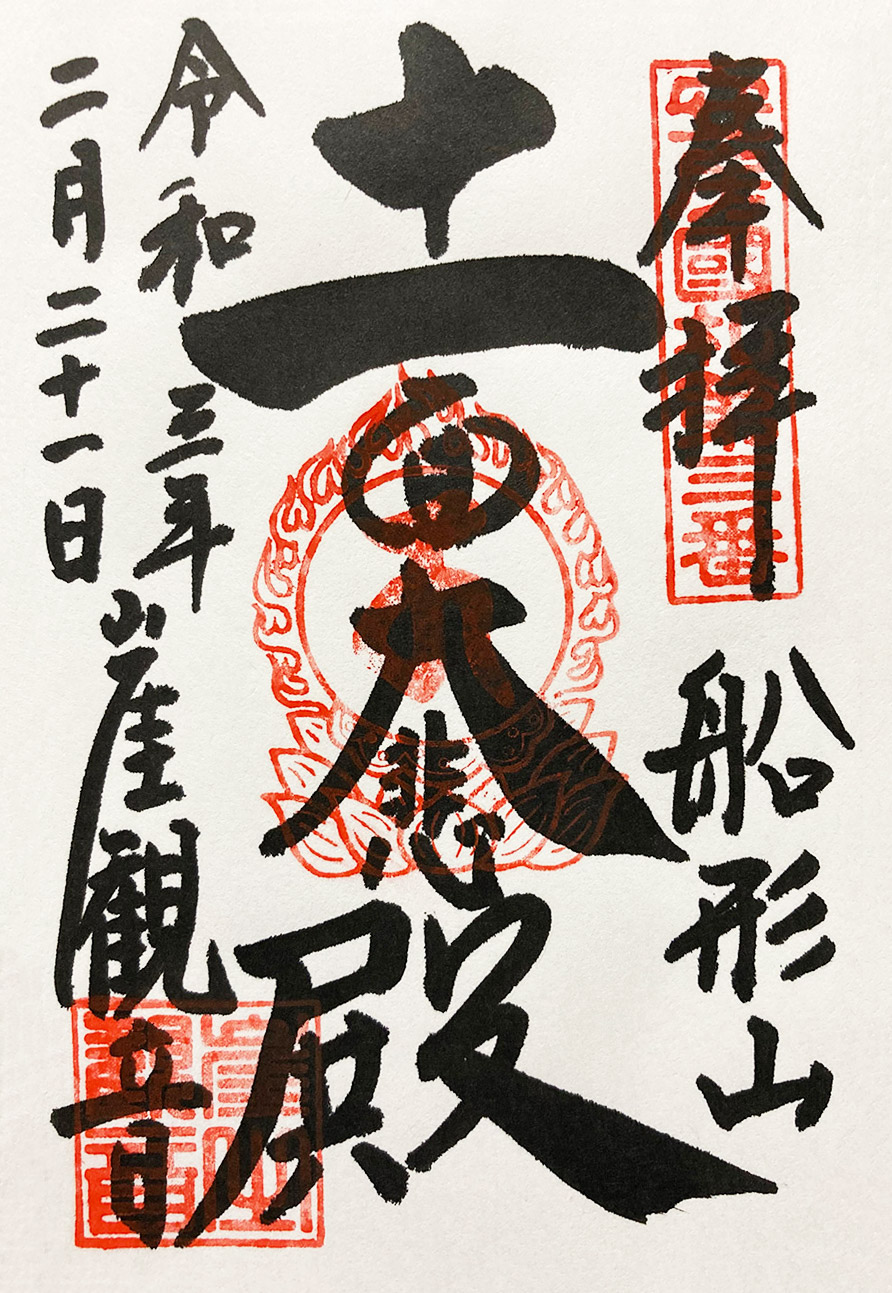 奉拝
船形山
十一面大悲殿
令和三年
二月二十一日
崖観音